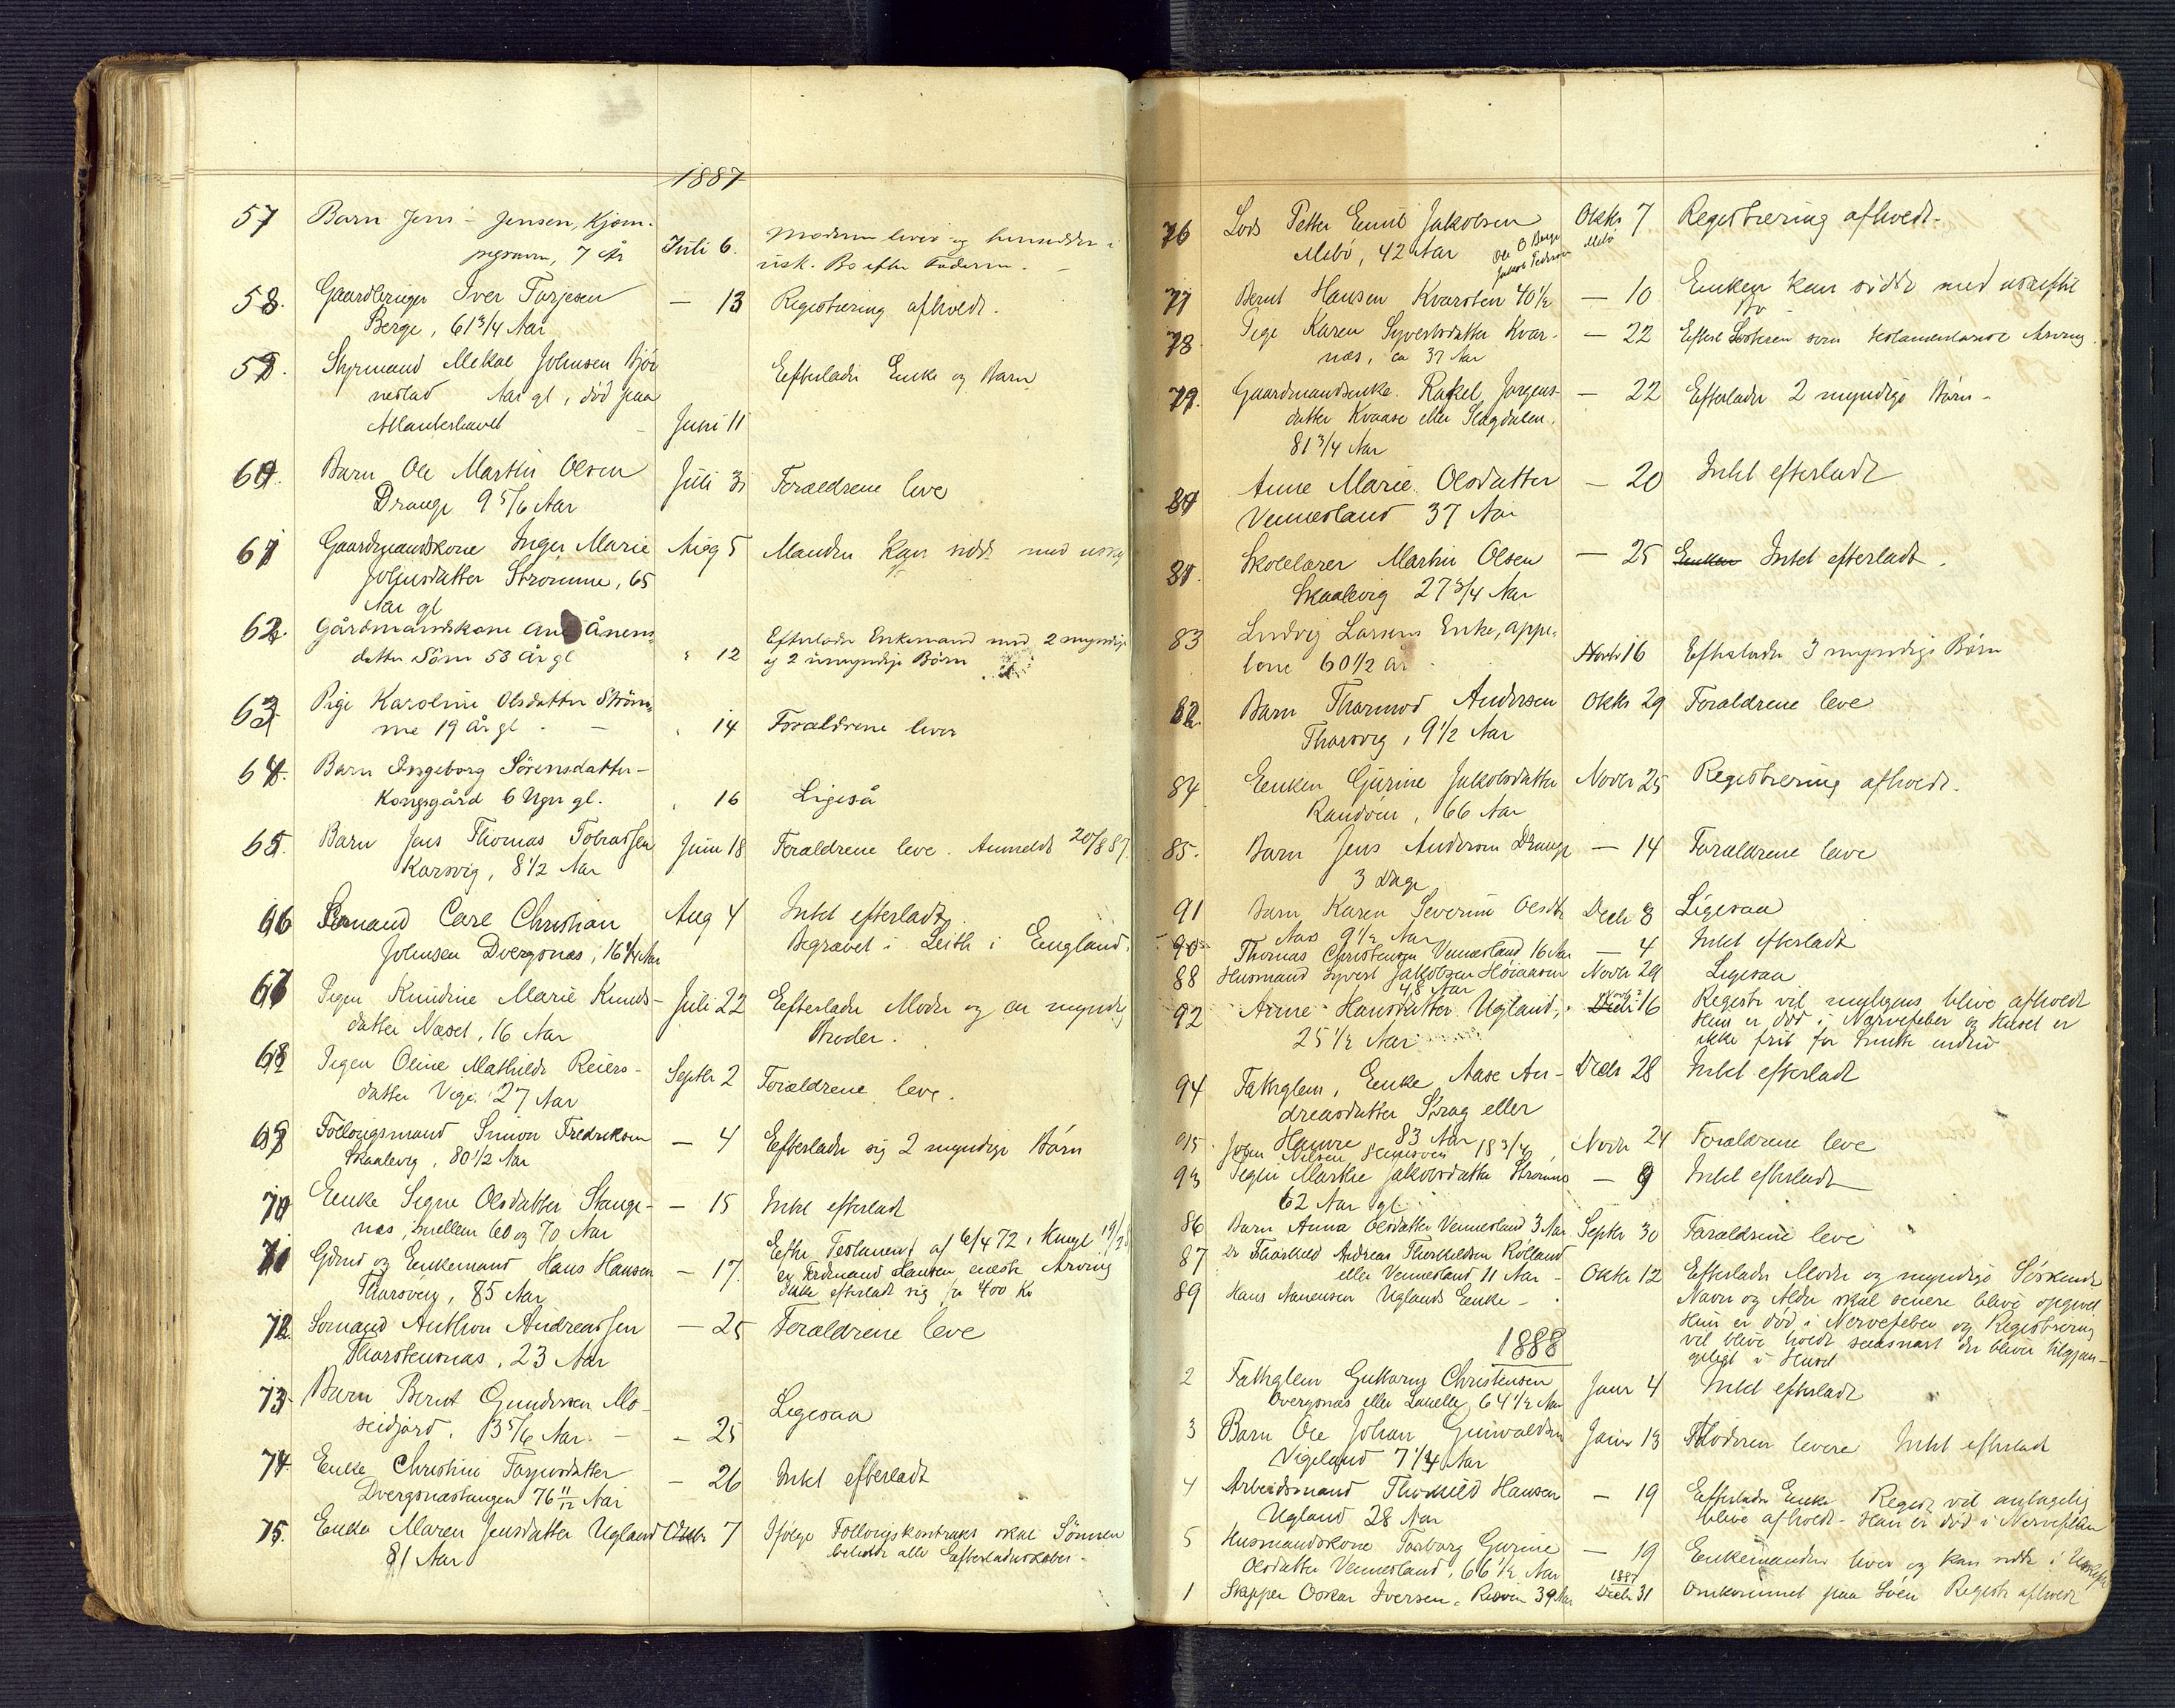 1887
57 Barn Jens Jensen, Kjom-
pegraven, 7 År Juli 6. Moderen lever og hensidder i
usk. Bo efter Faderen.
58. Gaardbruger Iver Tarjesen — 13 Registrering afholdt.
Berge, 61 3/4 Aar
59. Styrmand Mekal Johnsen Bjør Efterlader Enke og Barn
nestad Aar gl, død paa
Atlanterhavet Juni 11
60. Barn Ole Martin Olsen Juli 31 Forældrene leve
Drange 9 5/6 Aar
61 Gaardmandskone Inger Marie Aug 5 Manden kan sidde med uskif
Johnsdatter Strømme, 65
Aar gl
62. Gårdmandskone Ane Ånens-
datter Søm 53 År gl " 12 Efterlader Enkemand med 2 myndige
og 2 umyndige Børn
63 Pige Karoline Olsdatter Strøm-
me 19 År gl. — " 14 Forældrene lever
64. Barn Ingeborg Sørensdatter
Kongsgård 6 Uger gl. " 16 Ligeså
65. Barn Jens Thomas Tobiassen Juni 18 Forældrene leve. Anmeldt 20/8 87.
Korsvig, 8 1/2 Aar
66 Sømand Carl Christian Aug 4 Intet efterladt.
Johnsen Dvergsnæs, 16 1/4 Aar Begravet i Leith i England.
67 Pigen Knudine Marie Knuds- Juli 22 Efterlader Moder og en myndig
datter Næset, 16 Aar Broder.
68 Pigen Oline Mathilde Reiers- Septbr 2 Forældrene leve.
datter Vige 27 Aar
69 Føllougsmand Simon Fredriksen — 4 Efterlader sig 2 myndige Børn
Skaalevig, 80 1/2 Aar
70 Enke Signe Olsdatter Stange- — 15 Intet efterladt
næs, mellem 60 og 70 Aar
71 Gdmd og Enkemand Hans Hansen — 17. Efter Testament af 6/4 72,
Tharsvig, 85 Aar er Ferdinand Hansen eneste Arving
Ikke efterladt sig for 400 Kr
72 Sømand Anthon Andreassen — 25 Forældrene leve
Tharstensnæs, 23 Aar
73 Barn Bernt Gundersen Mo-
seidjord. 13 5/6 Aar. — 25 Ligesaa
74 Enke Christine Tarjesdatter — 26 Intet efterladt
Dvergsnæstangen 76 11/12 Aar
75. Enke Maren Jensdatter Ugland Oktbr 7 Ifølge Føllougskontrakt skal Sønnen
81 Aar beholde alle Efterladenskaber.
76 Lods Petter Emil Jakobsen Oktbr 7 Registrering afholdt.
Mebø, 42 Aar Ole O Berge Mebø
Jakob Pedersen
77 Bernt Hansen Kvarsten 40 1/2 — 10 Enken kan sidde med uskiftet
Bo
78. Pige Karen Syvertsdatter Kvar- — 22 Efterl Søsteren som testamentarisk Arving.
næs, ca 37 Aar
79. Gaardmandsenke Rakel Jørgens- — 22 Efterlader 2 myndige Børn.
datter Kvaase eller Slagdalen,
81 3/4 Aar
80 Anne Marie Olsdatter — 20 Intet efterladt
Vennesland 37 Aar
81. Skolelærer Martin Olsen — 25 Enken Intet efterladt.
Skaalevig 27 3/4 Aar
83 Ludvig Larsens Enke, Appe-
lone 60 1/2 år. Novbr 16 Efterlader 3 myndige Børn
82. Barn Tharmod Andersen Oktbr 29 Forældrene leve
Tharsvig, 9 1/2 Aar
84 Enken Gurine Jakobsdatter Novbr 25 Registrering afholdt.
Randøen, 66 Aar
85. Barn Jens Andersen Drange — 14 Forældrene leve
3 Dage
91 Barn Karen Severine Olsdtr Decbr 8 Ligesaa
Aas 9 1/2 Aar
90 Thomas Christensen Vennesland 16 Aar — 4 Intet efterladt
88 Husmand Syvert Jakobsen Høiaasen Novbr 29 Ligesaa
48 Aar
92 Anne Hansdatter Ugland, Decbr 16 Registr vil muligens blive afholdt
25 1/2 Aar Hun er død i Nervefeber og Huset er
ikke frit for Smitte endnu
94 Fattiglem, Enke Aase An- Decbr 28 Intet efterladt
dreasdatter Strag eller
Hamre 83 Aar
95. John Nilsen 18 3/4 Novbr 24 Forældrene leve
93 Pigen Marthe Jakobsdatter Strømme — 9 Intet efterladt
62 Aar gl
86 Barn Anna Olsdatter Vennesland 3 Aar Septbr 30 Forældrene leve
87 Do Tharkild Andreas Tharkildsen Rolland
eller Vennesland 11 Aar — Oktbr 12 Efterlader Moder og myndige Søskende
89 Hans Aanensen Uglands Enke — Navn og Alder skal senere blive opgivet
Hun er død i Nervefeber og Registrering
vil blive holdt saasnart der bliver tilgjæn-
geligt i Huset
1888
2 Fattiglem Guttorm Christensen Janr 4 Intet efterladt
Dvergsnæs eller 64 1/2 Aar
3 Barn Ole Johan Gunvaldsen Janr 13 Moderen levere Intet efterladt
Vigeland 7 1/4 Aar
4 Arbeidsmand Tharkild Hansen — 19 Efterlader Enke Registr vil antagelig
Ugland 28 Aar blive afholdt. Han er død i Nervefeber
5 Husmandskone Tarborg Gurine — 19 Enkemanden lever og kan sidde i Uskifte
Olsdatter Vennesland, 66 1/2 Aar
1 Skipper Oskar Iversen, Risøen 39 Aar 1887 Decbr 31 Omkommet paa Søen Registr afholdt